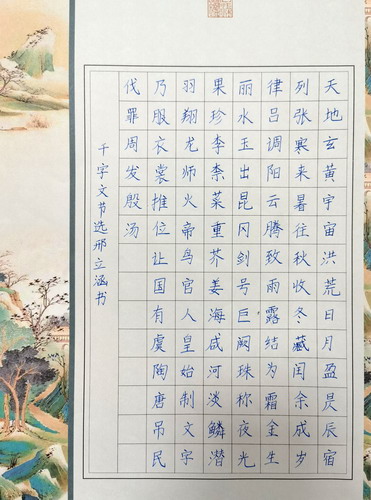 天地玄黄宇宙洪荒日月盈昃辰宿
列张寒来暑往秋收冬藏闰余成岁
律吕调阳云腾致雨露结为霜金生
丽水玉出昆冈剑号巨阙珠称夜光
果珍李柰菜重芥姜海咸河淡鳞潜
羽翔龙师火帝鸟官人皇始制文字
乃服衣裳推位让国有虞陶唐吊民
伐罪周发殷汤
千字文节选邢立涵书